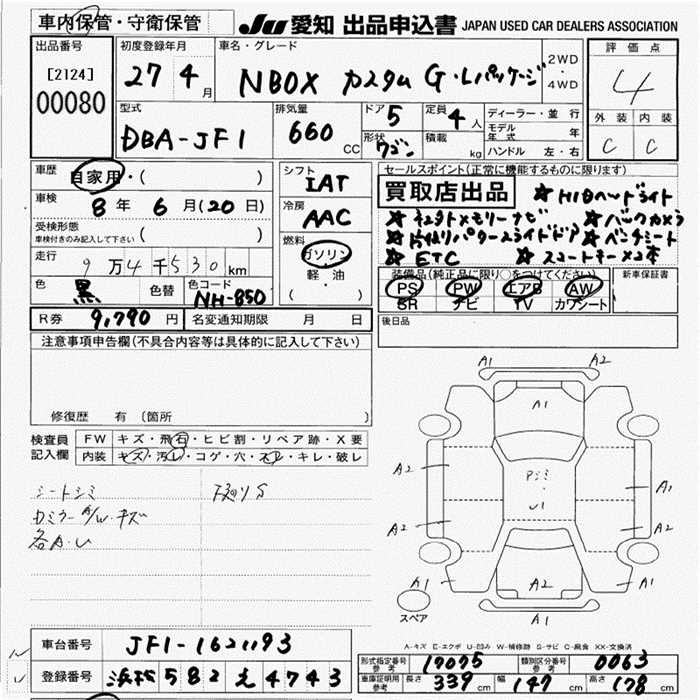 車内保管・守衛保管
JU 愛知 出品申込書 JAPAN USED CAR DEALERS ASSOCIATION
出品番号
[2124]
00080
初度登録年月
27 4月
車名・グレード
NBOX カスタム G・Lパッケージ
2WD
・
4WD
評価点
4
外装 内装
C C
型式
DBA-JF1
排気量
660 CC
ドア 5
形状 ワゴン
定員 4人
積載 kg
ディーラー・並行
モデル年式 年
ハンドル 左・右
車歴 自家用・( )
車検 8年 6月(20日)
受検形態
車検付きのみ記入して下さい ( )
走行 9万4千530km
色 黒 色替 色コード NH-850
シフト IAT
冷房 AAC
燃料 ガソリン
軽・油
( ・ )
セールスポイント(正常に機能するものに限ります)
買取店出品 ★HIDヘッドライト
★ バックカメラ
★ ★ベンチシート
★ETC ★スマートキー×2本
装備品(純正品に限り○をつけてください)
PS PW エアB AW
SR ナビ TV カワシート
新車保証書
R券 9,790円 名変通知期限 月 日
後日品
注意事項申告欄(不具合内容等は具体的に記入して下さい)
修復歴 有 (箇所 )
検査員記入欄
FW キズ・飛石・ヒビ割・リペア跡・X要
内装 キズ・汚レ・コゲ・穴・スレ・キレ・破レ
シートシミ 下廻りS
カミラーA/W・キズ
各A・U
A1 A2
A1
A2 Pシミ A1
・
U1
A2 A2
A1 A2 A1
A1
スペア
A-キズ E-エクボ U-凹み W-補修跡 S-サビ C-腐食 XX-交換済
車台番号 JF1-1621193
登録番号 浜松 582 え 4743
形式指定番号 参考 17075 類別区分番号 参考 0063
車庫証明用 参考 長さ 339cm 幅 147cm 高さ 178cm